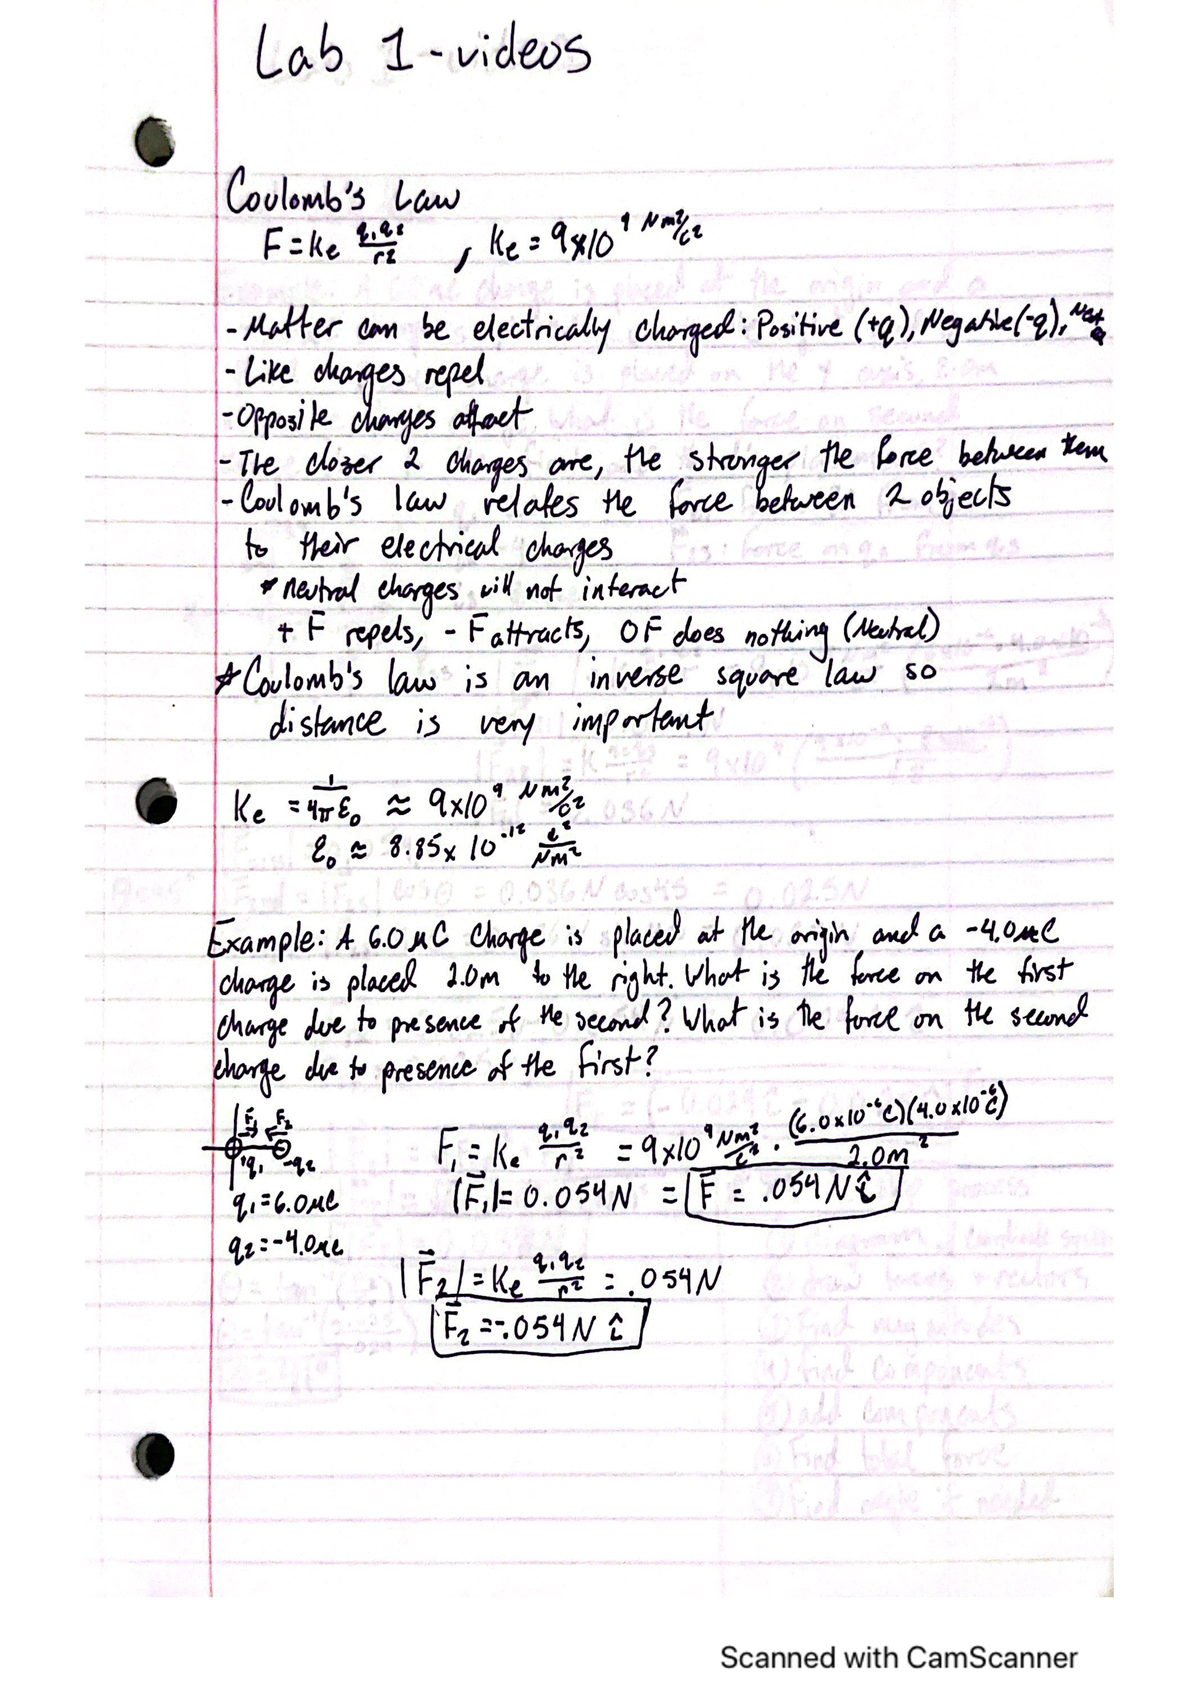 Lab 1-videos
Coulomb's Law
F = Ke q1q2/r2 , Ke = 9x10^9 Nm²/C²
- Matter can be electrically charged: Positive (+q), Negative (-q),
- Like charges repel
- Opposite charges attract
- The closer 2 charges are, the stronger the force between them
- Coulomb's law relates the force between 2 objects
to their electrical charges
* neutral charges will not interact
+ F repels, - F attracts, 0F does nothing (Neutral)
* Coulomb's law is an inverse square law so
distance is very important
Ke = 1/4πε0 ≈ 9x10^9 Nm²/C²
ε0 ≈ 8.85x10^-12 C²/Nm²
Example: A 6.0μC charge is placed at the origin and a -4.0μC
charge is placed 2.0m to the right. What is the force on the first
charge due to presence of the second? What is the force on the second
charge due to presence of the first?
F1 F2
+q1 -q2
q1=6.0μC
q2=-4.0μC
F1 = Ke q1q2/r² = 9x10^9 Nm²/C² · (6.0x10^-6C)(4.0x10^-6C)/2.0m²
|F1| = 0.054N = F = .054N î
|F2| = Ke q1q2/r² = .054N
F2 = -.054N î
Scanned with CamScanner